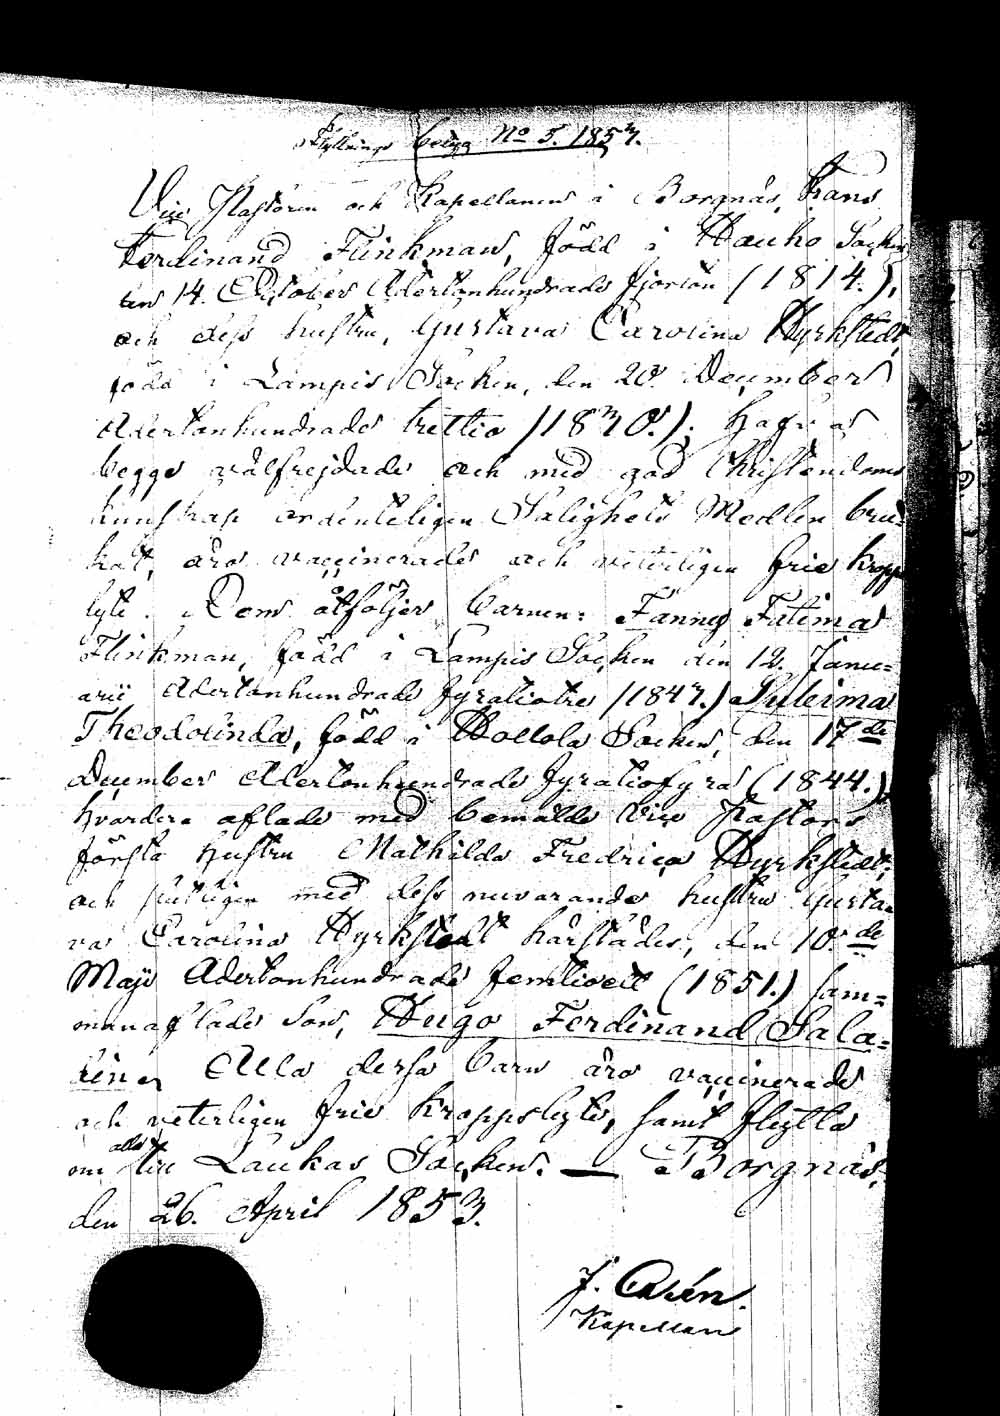 Flyttnings betyg No 5. 1853.
Vice Pastoren och Kapellanen i Borgnäs, Frans
Ferdinand Flinkman, född i Hauho Socken
den 14. October Adertonhundrade fjorton (1814.),
och dess hustru, Gustava Carolina Hyrkstedt,
född i Lampis Socken, den 20. December
Adertonhundrade trettio (1830.); hafva
begge välfrejdade och med god Christendoms
kunskap ordenteligen Salighets Medlen bru-
kat, äro vaccinerade och veterligen frie kropps
lyte. Dem åtföljer barnen: Fanny Fatima
Flinkman, född i Lampis Socken den 12. Janu=
arii Adertonhundrade fyratiotre (1843.) Suleima
Theodolinda, född i Hollola Socken, den 17de
December Adertonhundrade fyratiofyra (1844.),
hvardera aflade med bemälde Vice Pastors
första hustru Mathilda Fredrica Hyrkstedt;
och slutligen med dess nuvarande hustru Gusta-
va Carolina Hyrkstedt härstädes, den 10de
Maji Adertonhundrade femtioett (1851.) sam=
manaflade Son, Hugo Ferdinand Sala=
din. Alla dessa barn äro vaccinerade
och veterligen frie kroppslyte, samt flytta
om alla till Laukas Socken. — Borgnäs,
den 26. April 1853.
Kapellan